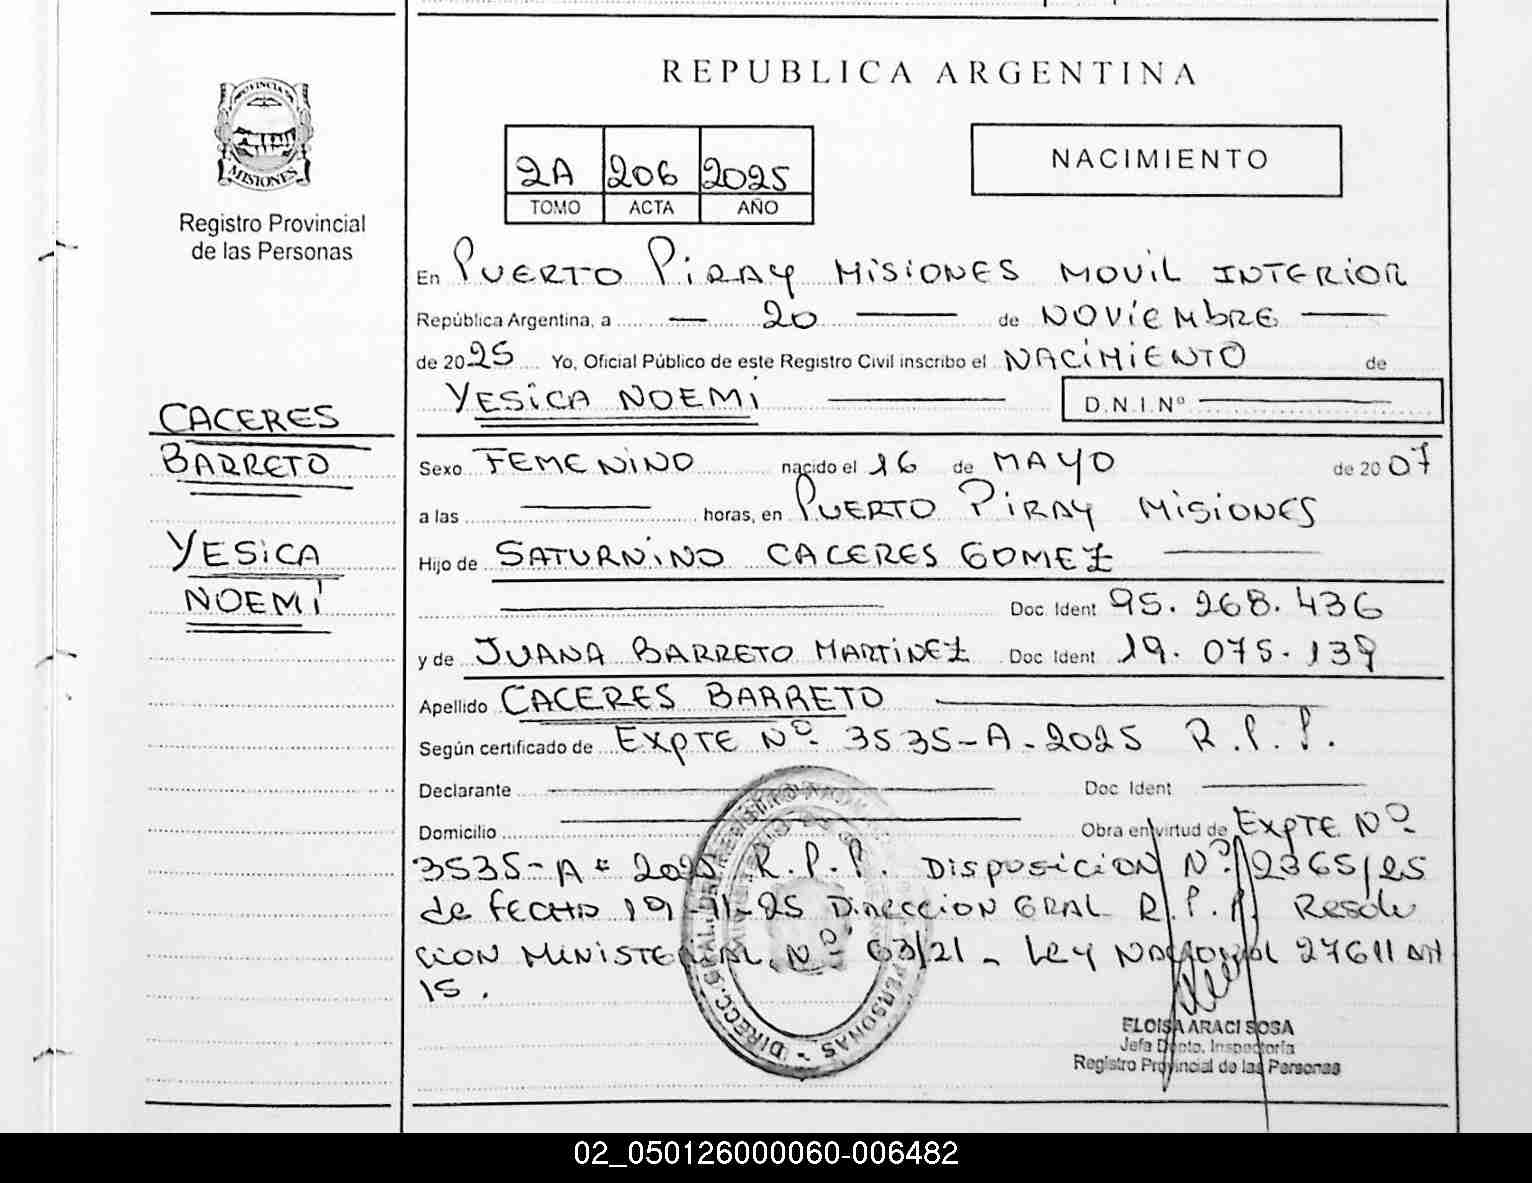 REPUBLICA ARGENTINA
PROVINCIA DE
MISIONES
Registro Provincial
de las Personas
2A 206 2025
TOMO ACTA AÑO
NACIMIENTO
En PUERTO PIRAY MISIONES MOVIL INTERIOR
República Argentina, a — 20 — de NOVIEMBRE —
de 2025 Yo, Oficial Público de este Registro Civil inscribo el NACIMIENTO de
YESICA NOEMI — D.N.I.Nº —
CACERES
BARRETO
YESICA
NOEMI
Sexo FEMENINO nacido el 16 de MAYO de 2007
a las — horas, en PUERTO PIRAY MISIONES
Hijo de SATURNINO CACERES GOMEZ —
— Doc. Ident 95.268.436
y de JUANA BARRETO MARTINEZ Doc. Ident 19.075.139
Apellido CACERES BARRETO —
Según certificado de EXPTE Nº 3535-A-2025 R.P.P.
Declarante — Doc. Ident —
Domicilio — Obra en virtud de EXPTE Nº
3535-A-2025 R.P.P. DISPOSICION Nº 2365/25
de FECHA 19-11-25 DIRECCION GRAL R.P.P. Resolu
cion MINISTERIAL Nº 63/21 - LEY NACIONAL 27611 Art
15.
DIRECC. GRAL. PERSONAS
ELOISA ARACI SOSA
Jefa Dpto. Inspectoría
Registro Provincial de las Personas
02_050126000060-006482